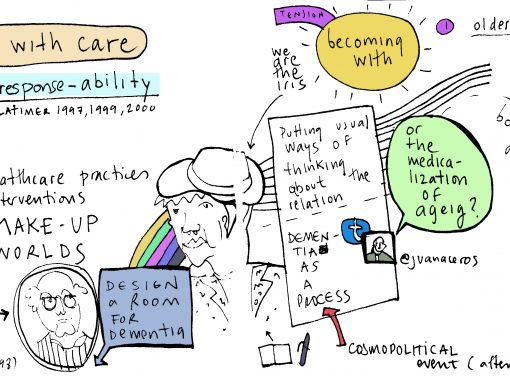 with care
response-ability
LATIMER 1997, 1999, 2000
althcare practices
terventions
MAKE-UP
WORLDS
DESIGN
a ROOM
FOR
Dementia
93)
TENSION
we
are
the
iris
becoming
with
1
olders
putting usual
ways OF
thinking
about the
relation
DEMEN-
TIA
AS
A
PROCESS
t
or
the
medica-
lization
of
ageig?
@juanaeros
COSMOPOLITICAL
event (after